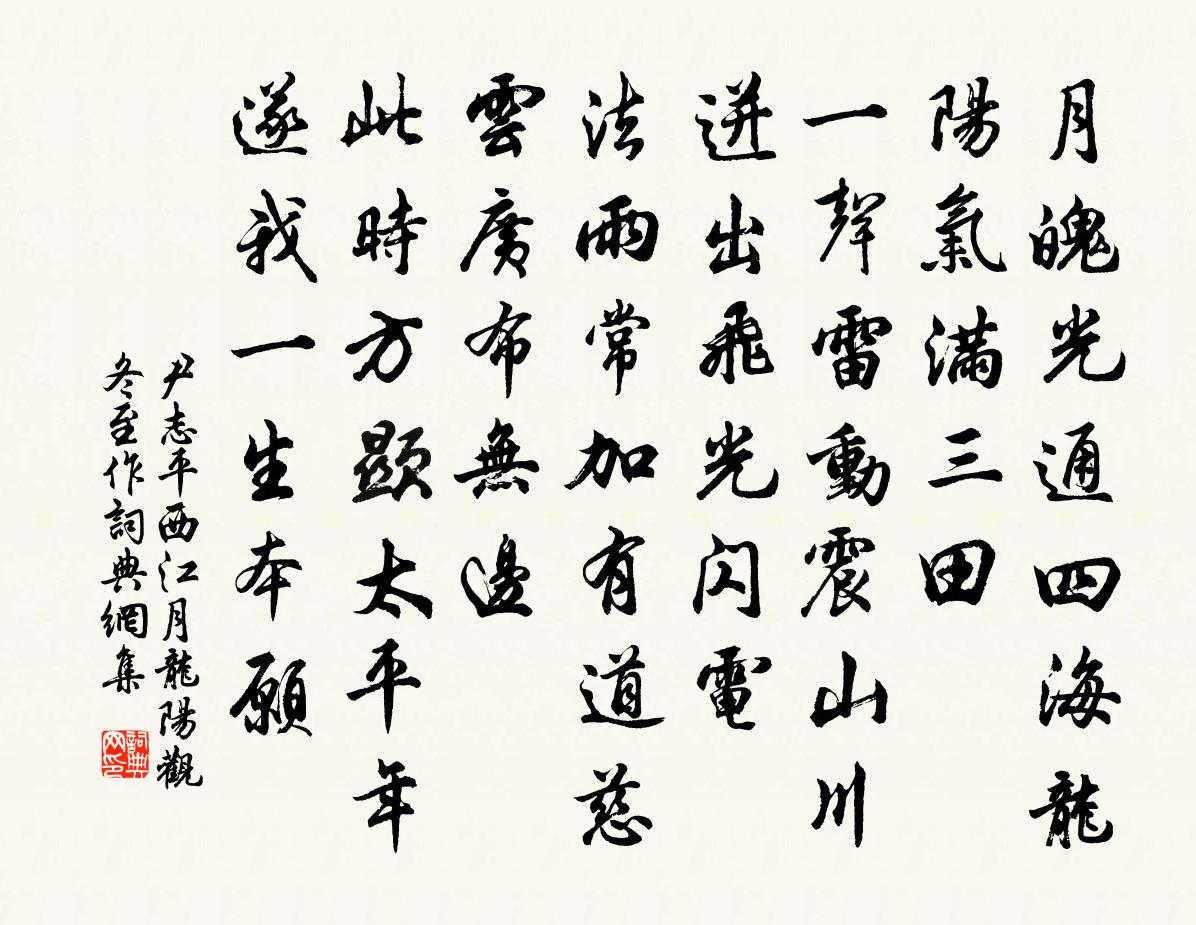 月魄光通四海龍
陽氣滿三田
一聲雷動震山川
迸出飛光閃電
法雨常加有道慈
雲廣布無邊
此時方顯太平年
遂我一生本願
尹志平西江月龍陽觀
冬至作詞典網集
詞典网印